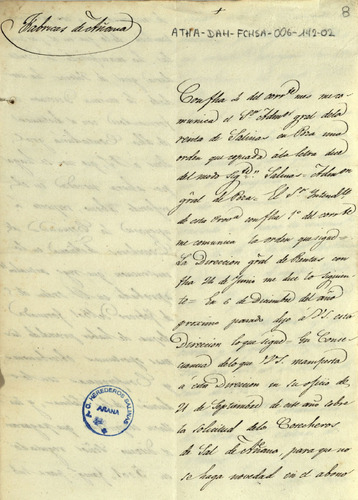 8
Fabricas de Añana
ATHA-DAH-FCHSA-006-142-02
Con fha 4 del corrte mes me co-
munica el Sor Admor gral de la
renta de Salinas en Bza una
orden que copiada á la letra dice
del modo sigte Salinas Admon
gral de Bza. El Sor Intendte
de esta Prova con fha 1º del corrte
me comunica la orden que sigue
La Direccion gral de Rentas con
fha 26 de Junio me dice lo siguien-
te En 6 de Diciembre del año
proximo pasado dijo á V.S. esta
Direccion lo que sigue En Conse-
cuencia de lo que V.S. manifiesta
á esta Direccion en su oficio de
21 de Septiembre de este año sobre
la solicitud de los Cosecheros
de Sal de Añana, para que no
se haga novedad en el abono
HEREDEROS SALINAS
AÑANA